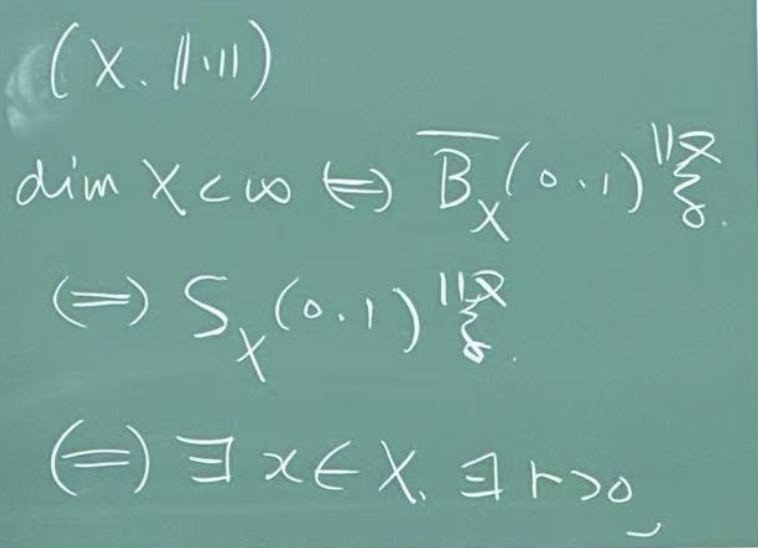 (X, ‖·‖)
dim X < ∞ ⇔ \overline{B}_X(0,1)
⇔ S_X(0,1)
⇔ ∃ x ∈ X, ∃ r > 0